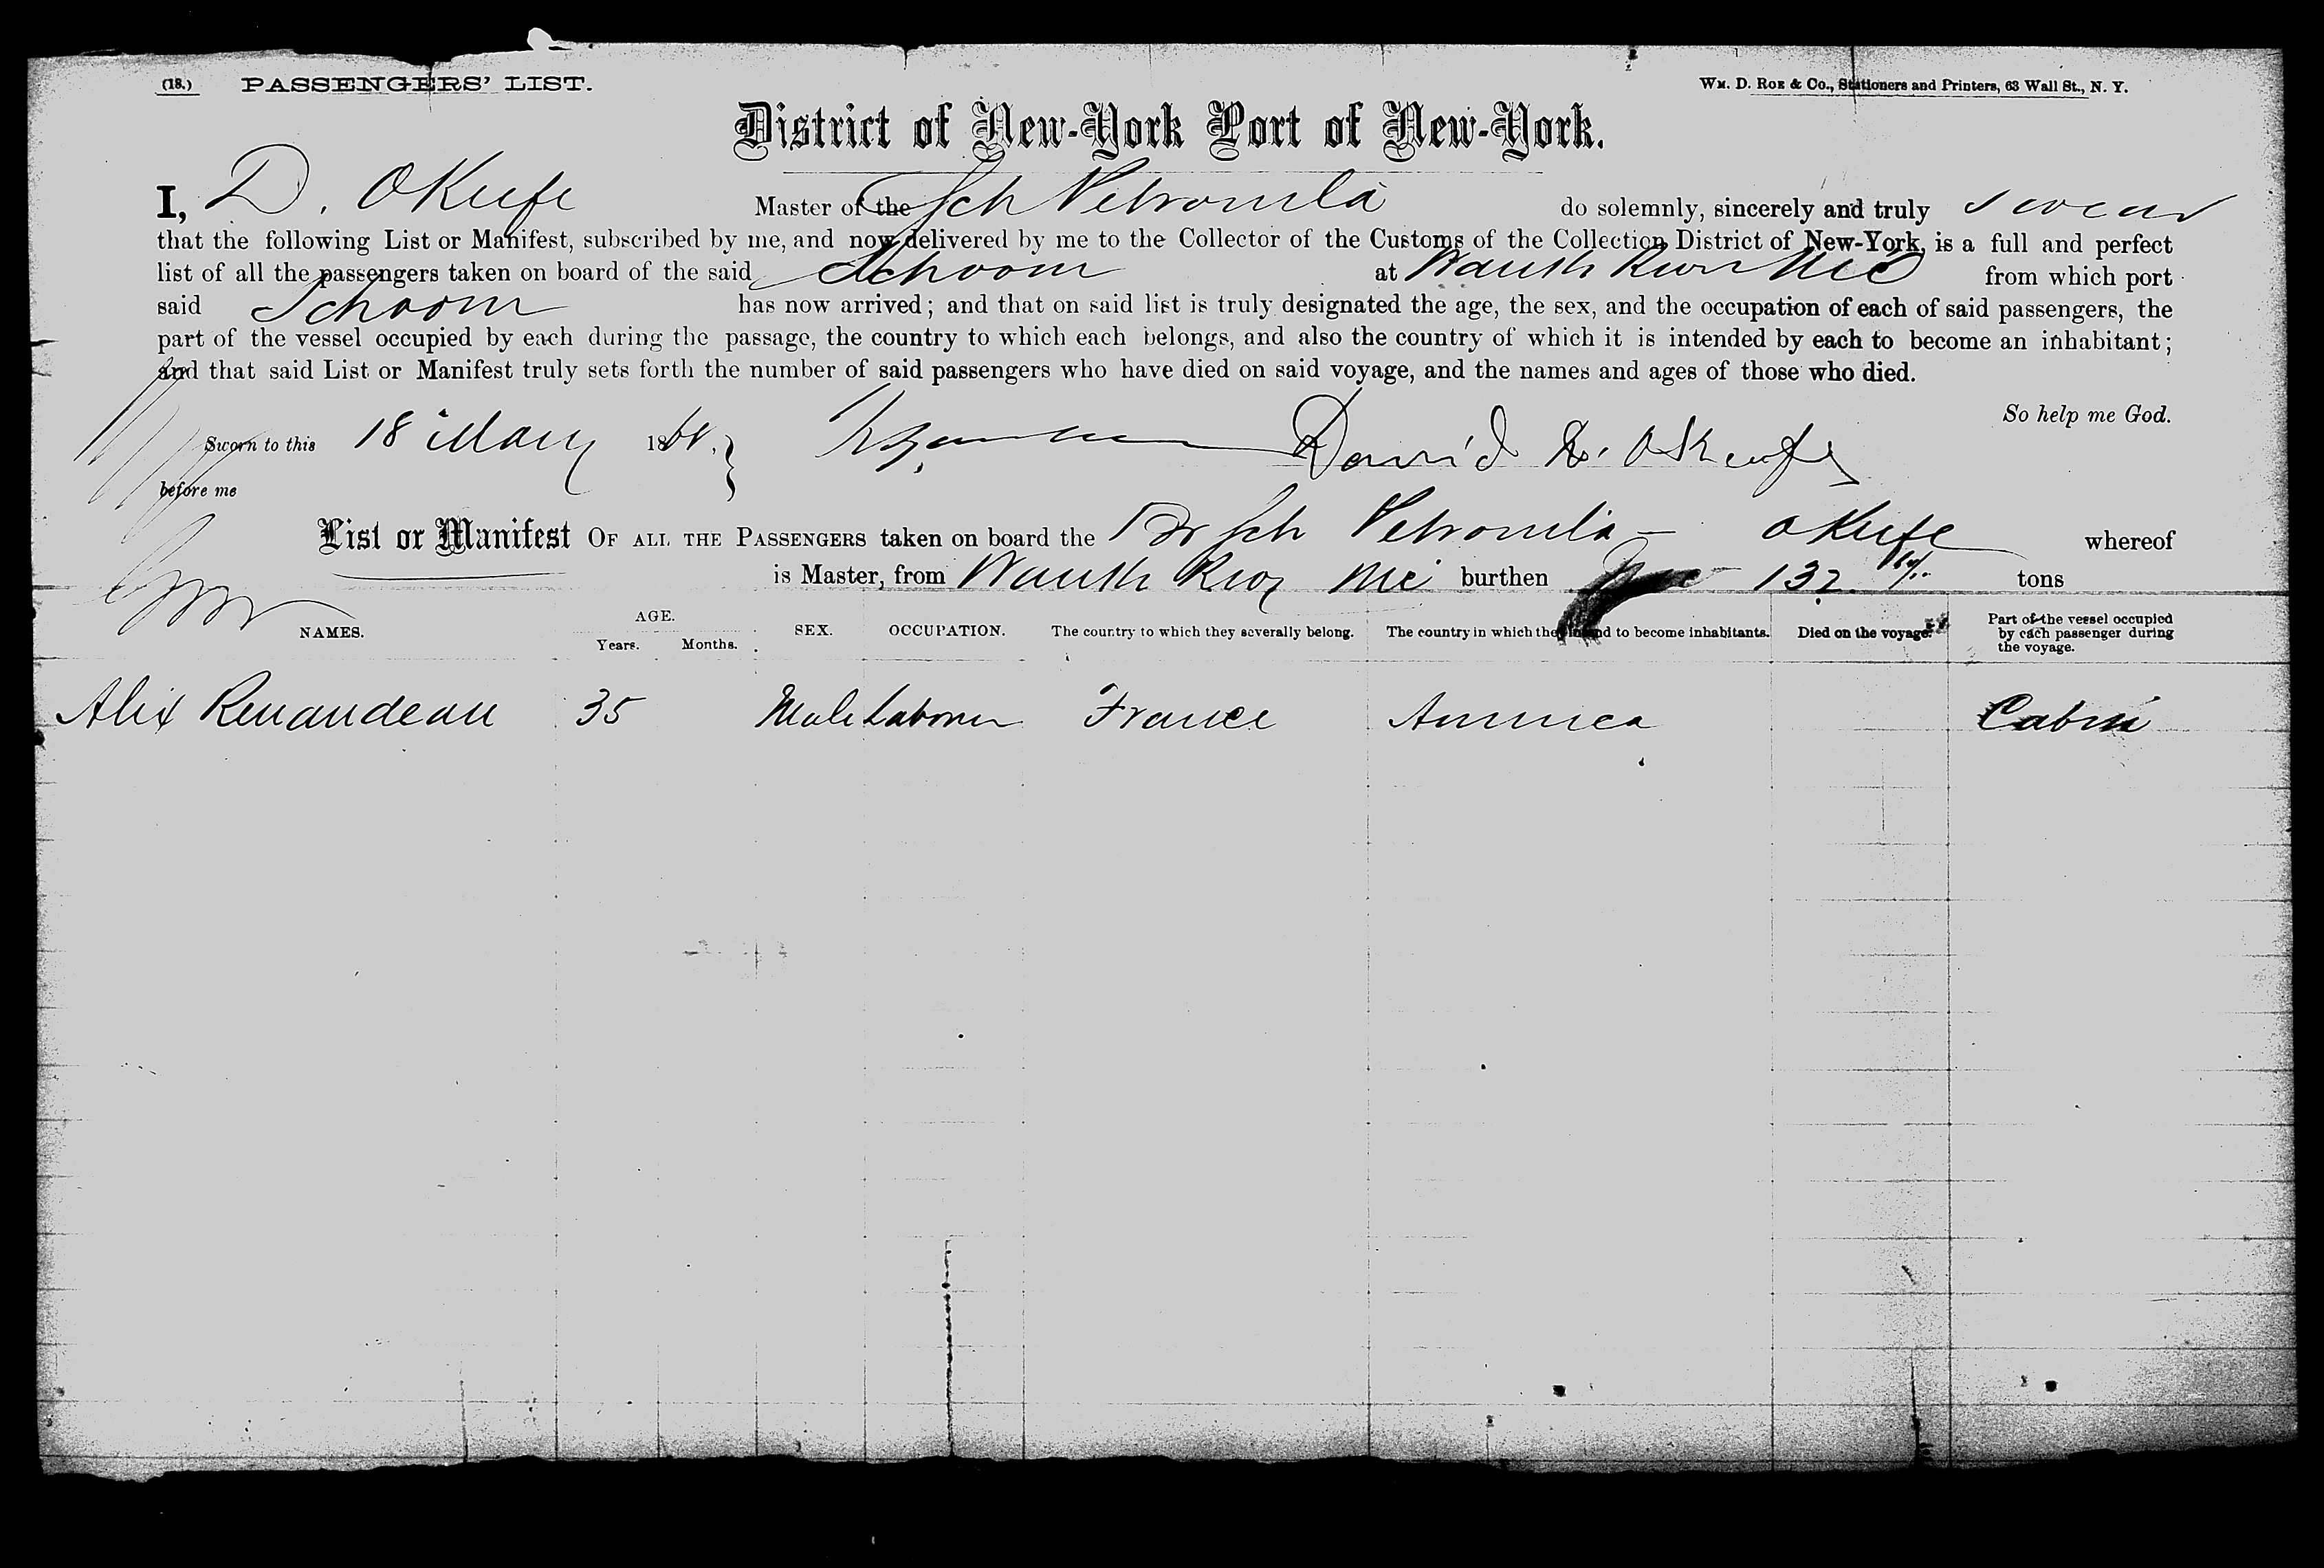 (18.) PASSENGERS' LIST.
Wm. D. Roe & Co., Stationers and Printers, 63 Wall St., N. Y.
District of New-York Port of New-York.
I, D. OKeefe Master of the Sch Petronila do solemnly, sincerely and truly swear
that the following List or Manifest, subscribed by me, and now delivered by me to the Collector of the Customs of the Collection District of New-York, is a full and perfect
list of all the passengers taken on board of the said Schoonr at from which port
said Schoonr has now arrived; and that on said list is truly designated the age, the sex, and the occupation of each of said passengers, the
part of the vessel occupied by each during the passage, the country to which each belongs, and also the country of which it is intended by each to become an inhabitant;
and that said List or Manifest truly sets forth the number of said passengers who have died on said voyage, and the names and ages of those who died.
So help me God.
Sworn to this 18 May 18 David OKeefe
before me
List or Manifest OF ALL THE PASSENGERS taken on board the Br Sch Petronila - OKeefe whereof
is Master, from burthen 132 tons
NAMES. AGE. Years. Months. SEX. OCCUPATION. The country to which they severally belong. The country in which they intend to become inhabitants. Died on the voyage. Part of the vessel occupied by each passenger during the voyage.
Alix Renaudeau 35 Male Laborer France America Cabin